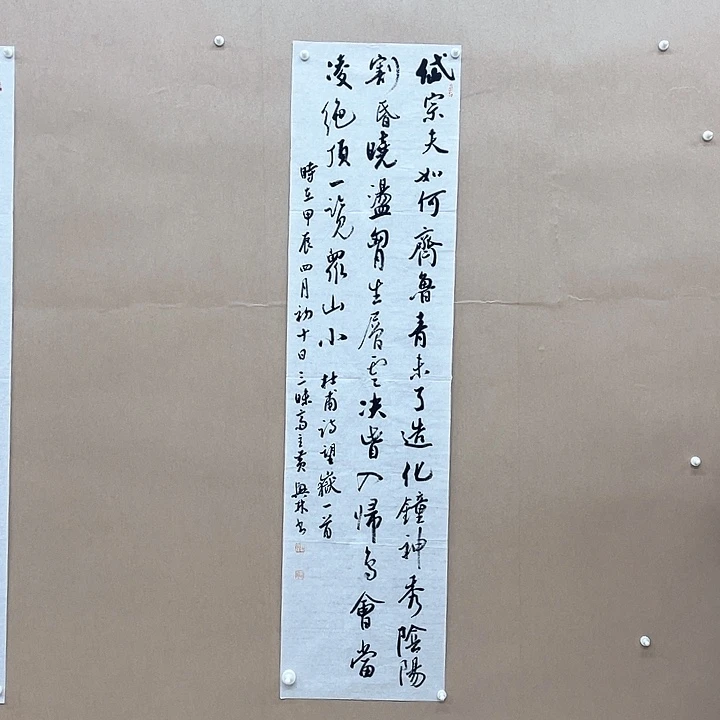 岱宗夫如何齊魯青未了造化鐘神秀陰陽
割昏曉盪胷生層雲决眥入歸鳥會當
凌絶頂一覽眾山小 杜甫詩望嶽一首
時在甲辰四月初十日三味齋主黃興林書